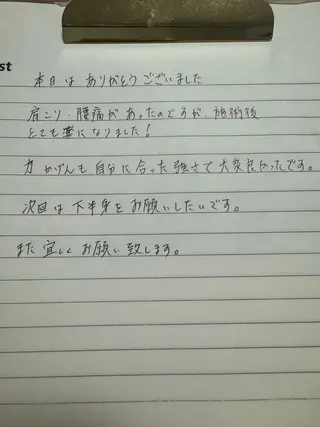 st
本日は ありがとうございました
肩こり・腰痛があったのですが、施術後
とても楽になりました!
力かげんも自分に合った強さで大変良かったです。
次回は下半身をお願いしたいです。
また宜しくお願い致します。